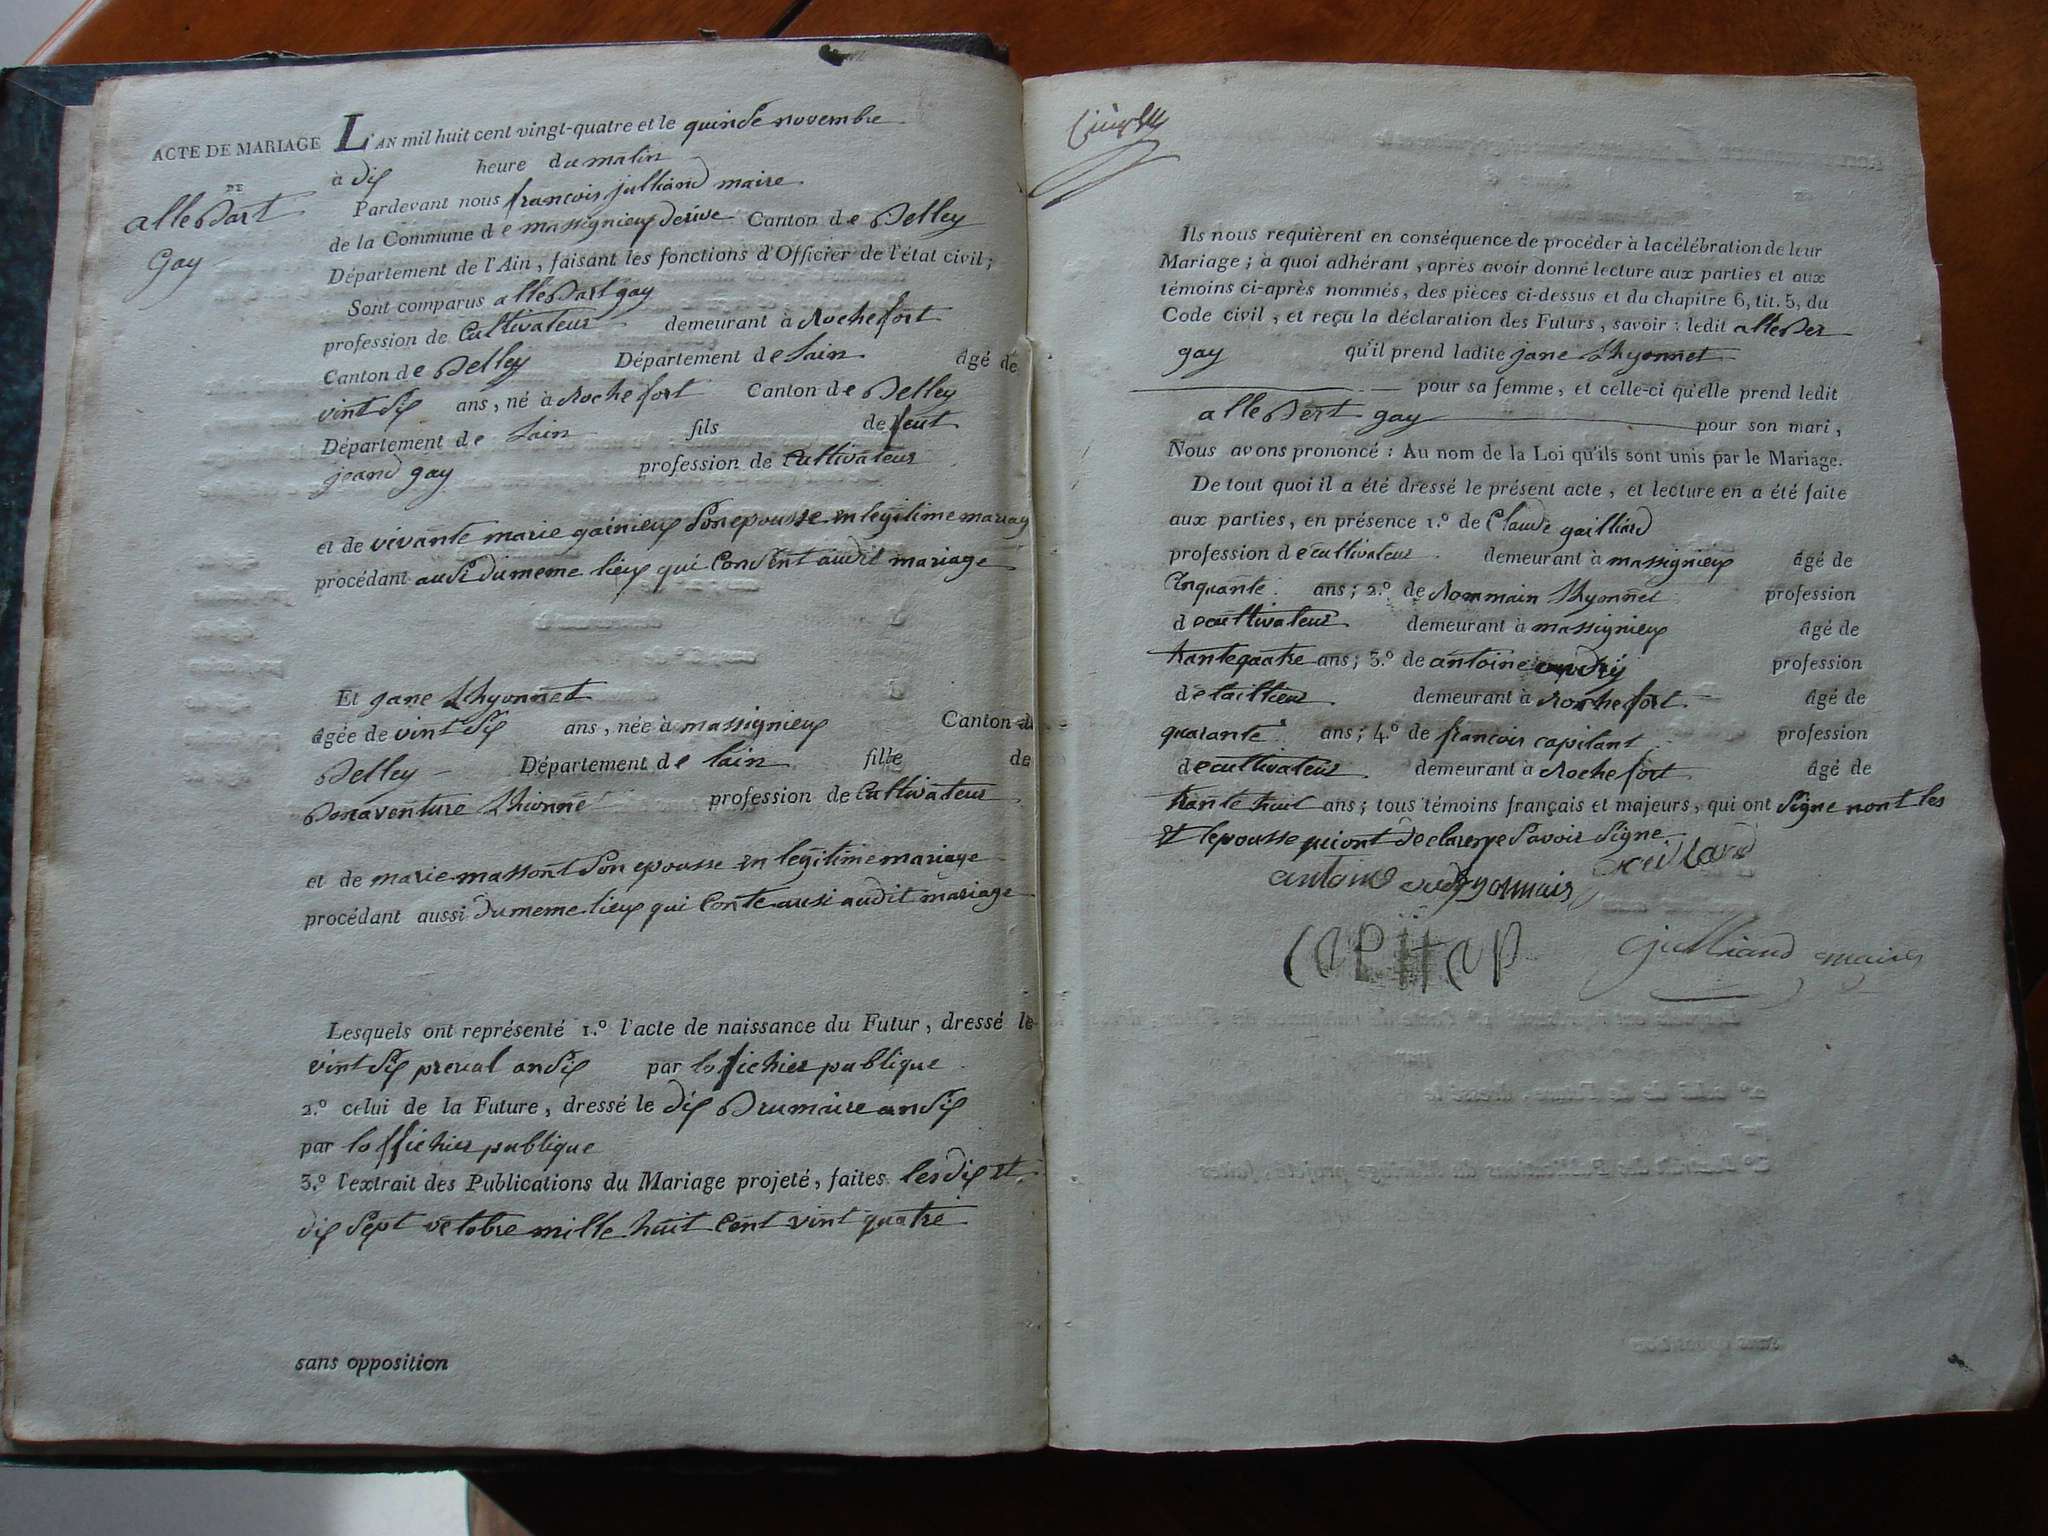 ACTE DE MARIAGE
DE
alleBart
Gay
L'AN mil huit cent vingt-quatre et le quinse novembre
à dix heure du matin
Pardevant nous francois julliand maire
de la Commune de massignieux derive Canton de Belley
Département de l'Ain, faisant les fonctions d'Officier de l'état civil;
Sont comparus alleBart gay
profession de Cultivateur demeurant à Rochefort
Canton de Belley Département de lain âgé de
vint six ans, né à Rochefort Canton de Belley
Département de lain fils de feut
jeand gay profession de Cultivateur
et de vivante marie gainieux son epousse en legitime mariag
procédant ausi du meme lieux qui consent audit mariage
Et jane Thyonnet
âgée de vint six ans, née à massignieux Canton de
Belley Département de lain fille de
Bonaventure Thionne profession de Cultivateur
et de marie massont son epousse en legitime mariage
procédant aussi du meme lieux qui conte ausi audit mariage
Lesquels ont représenté 1.º l'acte de naissance du Futur, dressé le
vint six an six par loffichier publique
2.º celui de la Future, dressé le dix Brumaire an six
par loffichier publique
3.º l'extrait des Publications du Mariage projeté, faites les dix et
dix sept octobre mille huit cent vint quatre
sans opposition
Ils nous requièrent en conséquence de procéder à la célébration de leur
Mariage; à quoi adhérant, après avoir donné lecture aux parties et aux
témoins ci-après nommés, des pièces ci-dessus et du chapitre 6, tit. 5, du
Code civil, et reçu la déclaration des Futurs, savoir: ledit alleBer
gay qu'il prend ladite jane Thyonnet
pour sa femme, et celle-ci qu'elle prend ledit
alleBert gay pour son mari,
Nous avons prononcé: Au nom de la Loi qu'ils sont unis par le Mariage.
De tout quoi il a été dressé le présent acte, et lecture en a été faite
aux parties, en présence 1.º de Claude gailliard
profession de cultivateur demeurant à massignieux âgé de
Cinquante ans; 2.º de Rommain Thyonnet profession
de cultivateur demeurant à massignieux âgé de
trante quatre ans; 3.º de antoine profession
de taillieur demeurant à Rochefort âgé de
quarante ans; 4.º de francoir capitant profession
de cultivateur demeurant à Rochefort âgé de
trante huit ans; tous témoins français et majeurs, qui ont signe nont les
et lepousse qui ont declarerne savoir signe
antoine
julliand maire